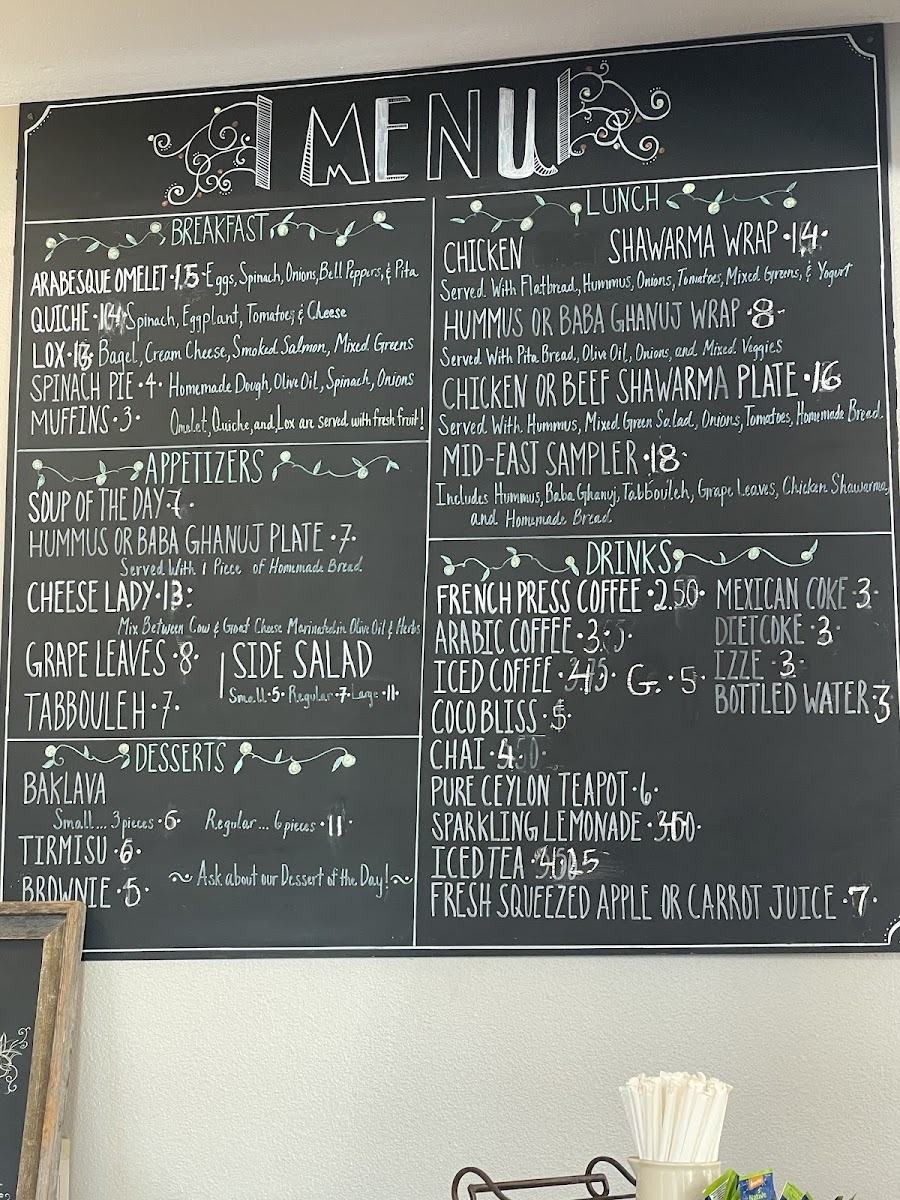 MENU
BREAKFAST
ARABESQUE OMELET • 15 • Eggs, Spinach, Onions, Bell Peppers, & Pita
QUICHE • 14 Spinach, Eggplant, Tomatoes & Cheese
LOX • Bagel, Cream Cheese, Smoked Salmon, Mixed Greens
SPINACH PIE • 4 • Homemade Dough, Olive Oil, Spinach, Onions
MUFFINS • 3 • Omelet, Quiche, and Lox are served with fresh fruit!
APPETIZERS
SOUP OF THE DAY 7 •
HUMMUS OR BABA GHANUJ PLATE • 7 •
Served With 1 Piece of Homemade Bread
CHEESE LADY • 13 •
Mix Between Cow & Goat Cheese Marinated in Olive Oil & Herbs
GRAPE LEAVES • 8 •
TABBOULEH • 7 •
SIDE SALAD
Small • 5 • Regular • 7 • Large • 11 •
DESSERTS
BAKLAVA
Small... 3 pieces • 6 • Regular... 6 pieces • 11 •
TIRMISU • 6 •
BROWNIE • 5 •
~ Ask about our Dessert of the Day! ~
LUNCH
CHICKEN SHAWARMA WRAP • 14 •
Served With Flatbread, Hummus, Onions, Tomatoes, Mixed Greens, & Yogurt
HUMMUS OR BABA GHANUJ WRAP • 8 •
Served With Pita Bread, Olive Oil, Onions, and Mixed Veggies
CHICKEN OR BEEF SHAWARMA PLATE • 16
Served With Hummus, Mixed Green Salad, Onions, Tomatoes, Homemade Bread
MID-EAST SAMPLER • 18 •
Includes Hummus, Baba Ghanuj, Tabbouleh, Grape Leaves, Chicken Shawarma,
and Homemade Bread
DRINKS
FRENCH PRESS COFFEE • 2.50 •
ARABIC COFFEE • 3 •
ICED COFFEE • G. • 5 •
COCO BLISS • 5 •
CHAI • 4
PURE CEYLON TEAPOT • 6 •
SPARKLING LEMONADE •
ICED TEA •
FRESH SQUEEZED APPLE OR CARROT JUICE • 7 •
MEXICAN COKE • 3 •
DIET COKE • 3 •
IZZE • 3 •
BOTTLED WATER • 3